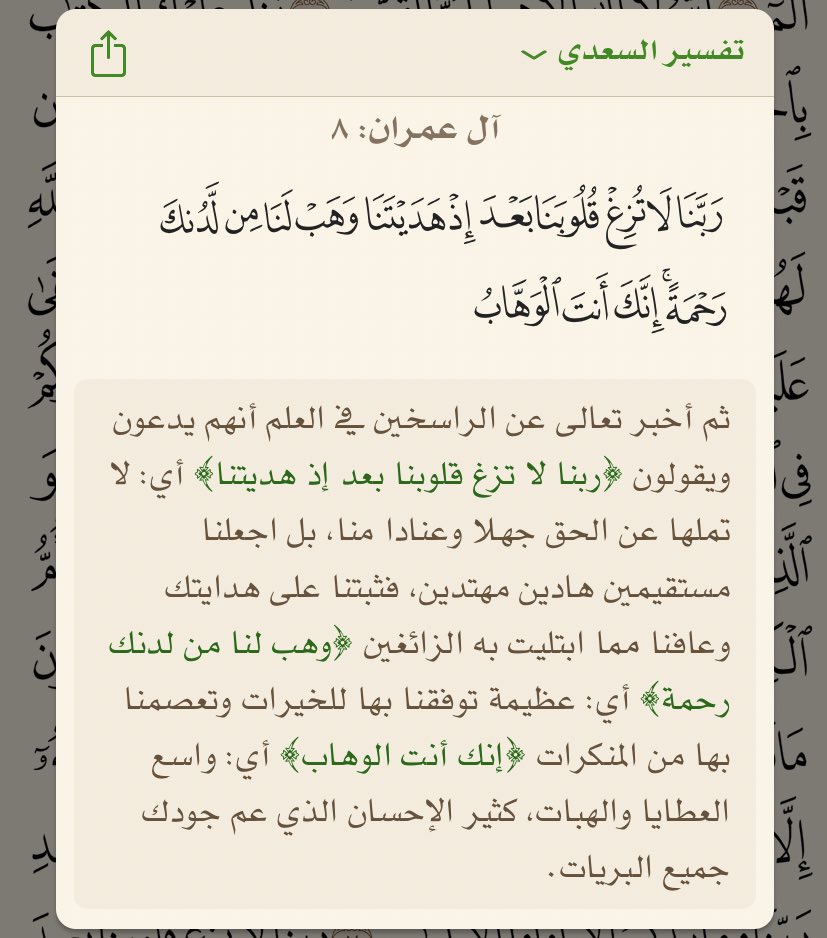 تفسير السعدي
آل عمران: ٨
رَبَّنَا لَا تُزِغْ قُلُوبَنَا بَعْدَ إِذْ هَدَيْتَنَا وَهَبْ لَنَا مِن لَّدُنكَ
رَحْمَةً ۚ إِنَّكَ أَنتَ ٱلْوَهَّابُ
ثم أخبر تعالى عن الراسخين في العلم أنهم يدعون
ويقولون ﴿ربنا لا تزغ قلوبنا بعد إذ هديتنا﴾ أي: لا
تملها عن الحق جهلا وعنادا منا، بل اجعلنا
مستقيمين هادين مهتدين، فثبتنا على هدايتك
وعافنا مما ابتليت به الزائغين ﴿وهب لنا من لدنك
رحمة﴾ أي: عظيمة توفقنا بها للخيرات وتعصمنا
بها من المنكرات ﴿إنك أنت الوهاب﴾ أي: واسع
العطايا والهبات، كثير الإحسان الذي عم جودك
جميع البريات.